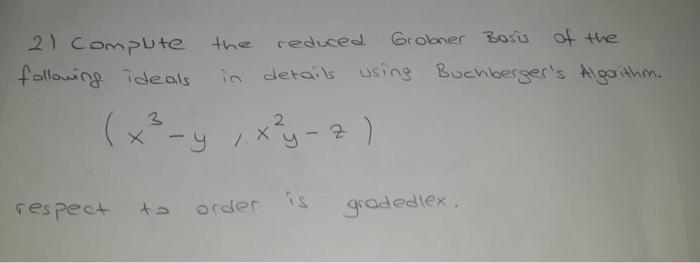 2) Compute the reduced Grobner Basis of the
following ideals in details using Buchberger's Algorithm.
(x³-y, x²y-z)
respect to order is gradedlex.